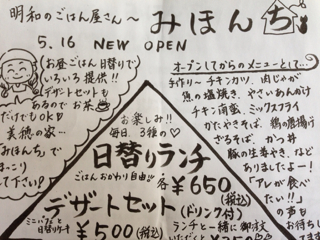 明和のごはん屋さん〜 みほんち
5.16 NEW OPEN
お昼ごはん日替りで
いろいろ提供!!
デザートセットも
あるのでお茶
だけでもOK♡
美穂の家…
みほんちで
まっこり
して下さい!
オープンしてからのメニューとして…
手作り〜チキンカツ、肉じゃが
魚の塩焼き、やさいあんかけ
チキン南蛮、ミックスフライ
かたやきそば、鶏の唐揚げ
ざるそば、かつ丼
豚の生姜やき、など
ありましたよー!
「アレが食べ
たい!!」
の声も
お待ちし
お楽しみ!!
毎日、3種の♡
日替りランチ
ごはんおかわり自由 各¥650
(税込)
デザートセット
(ドリンク付)
ミニパフェと
日替りケーキ ¥500(税込)
ランチと一緒に御注文